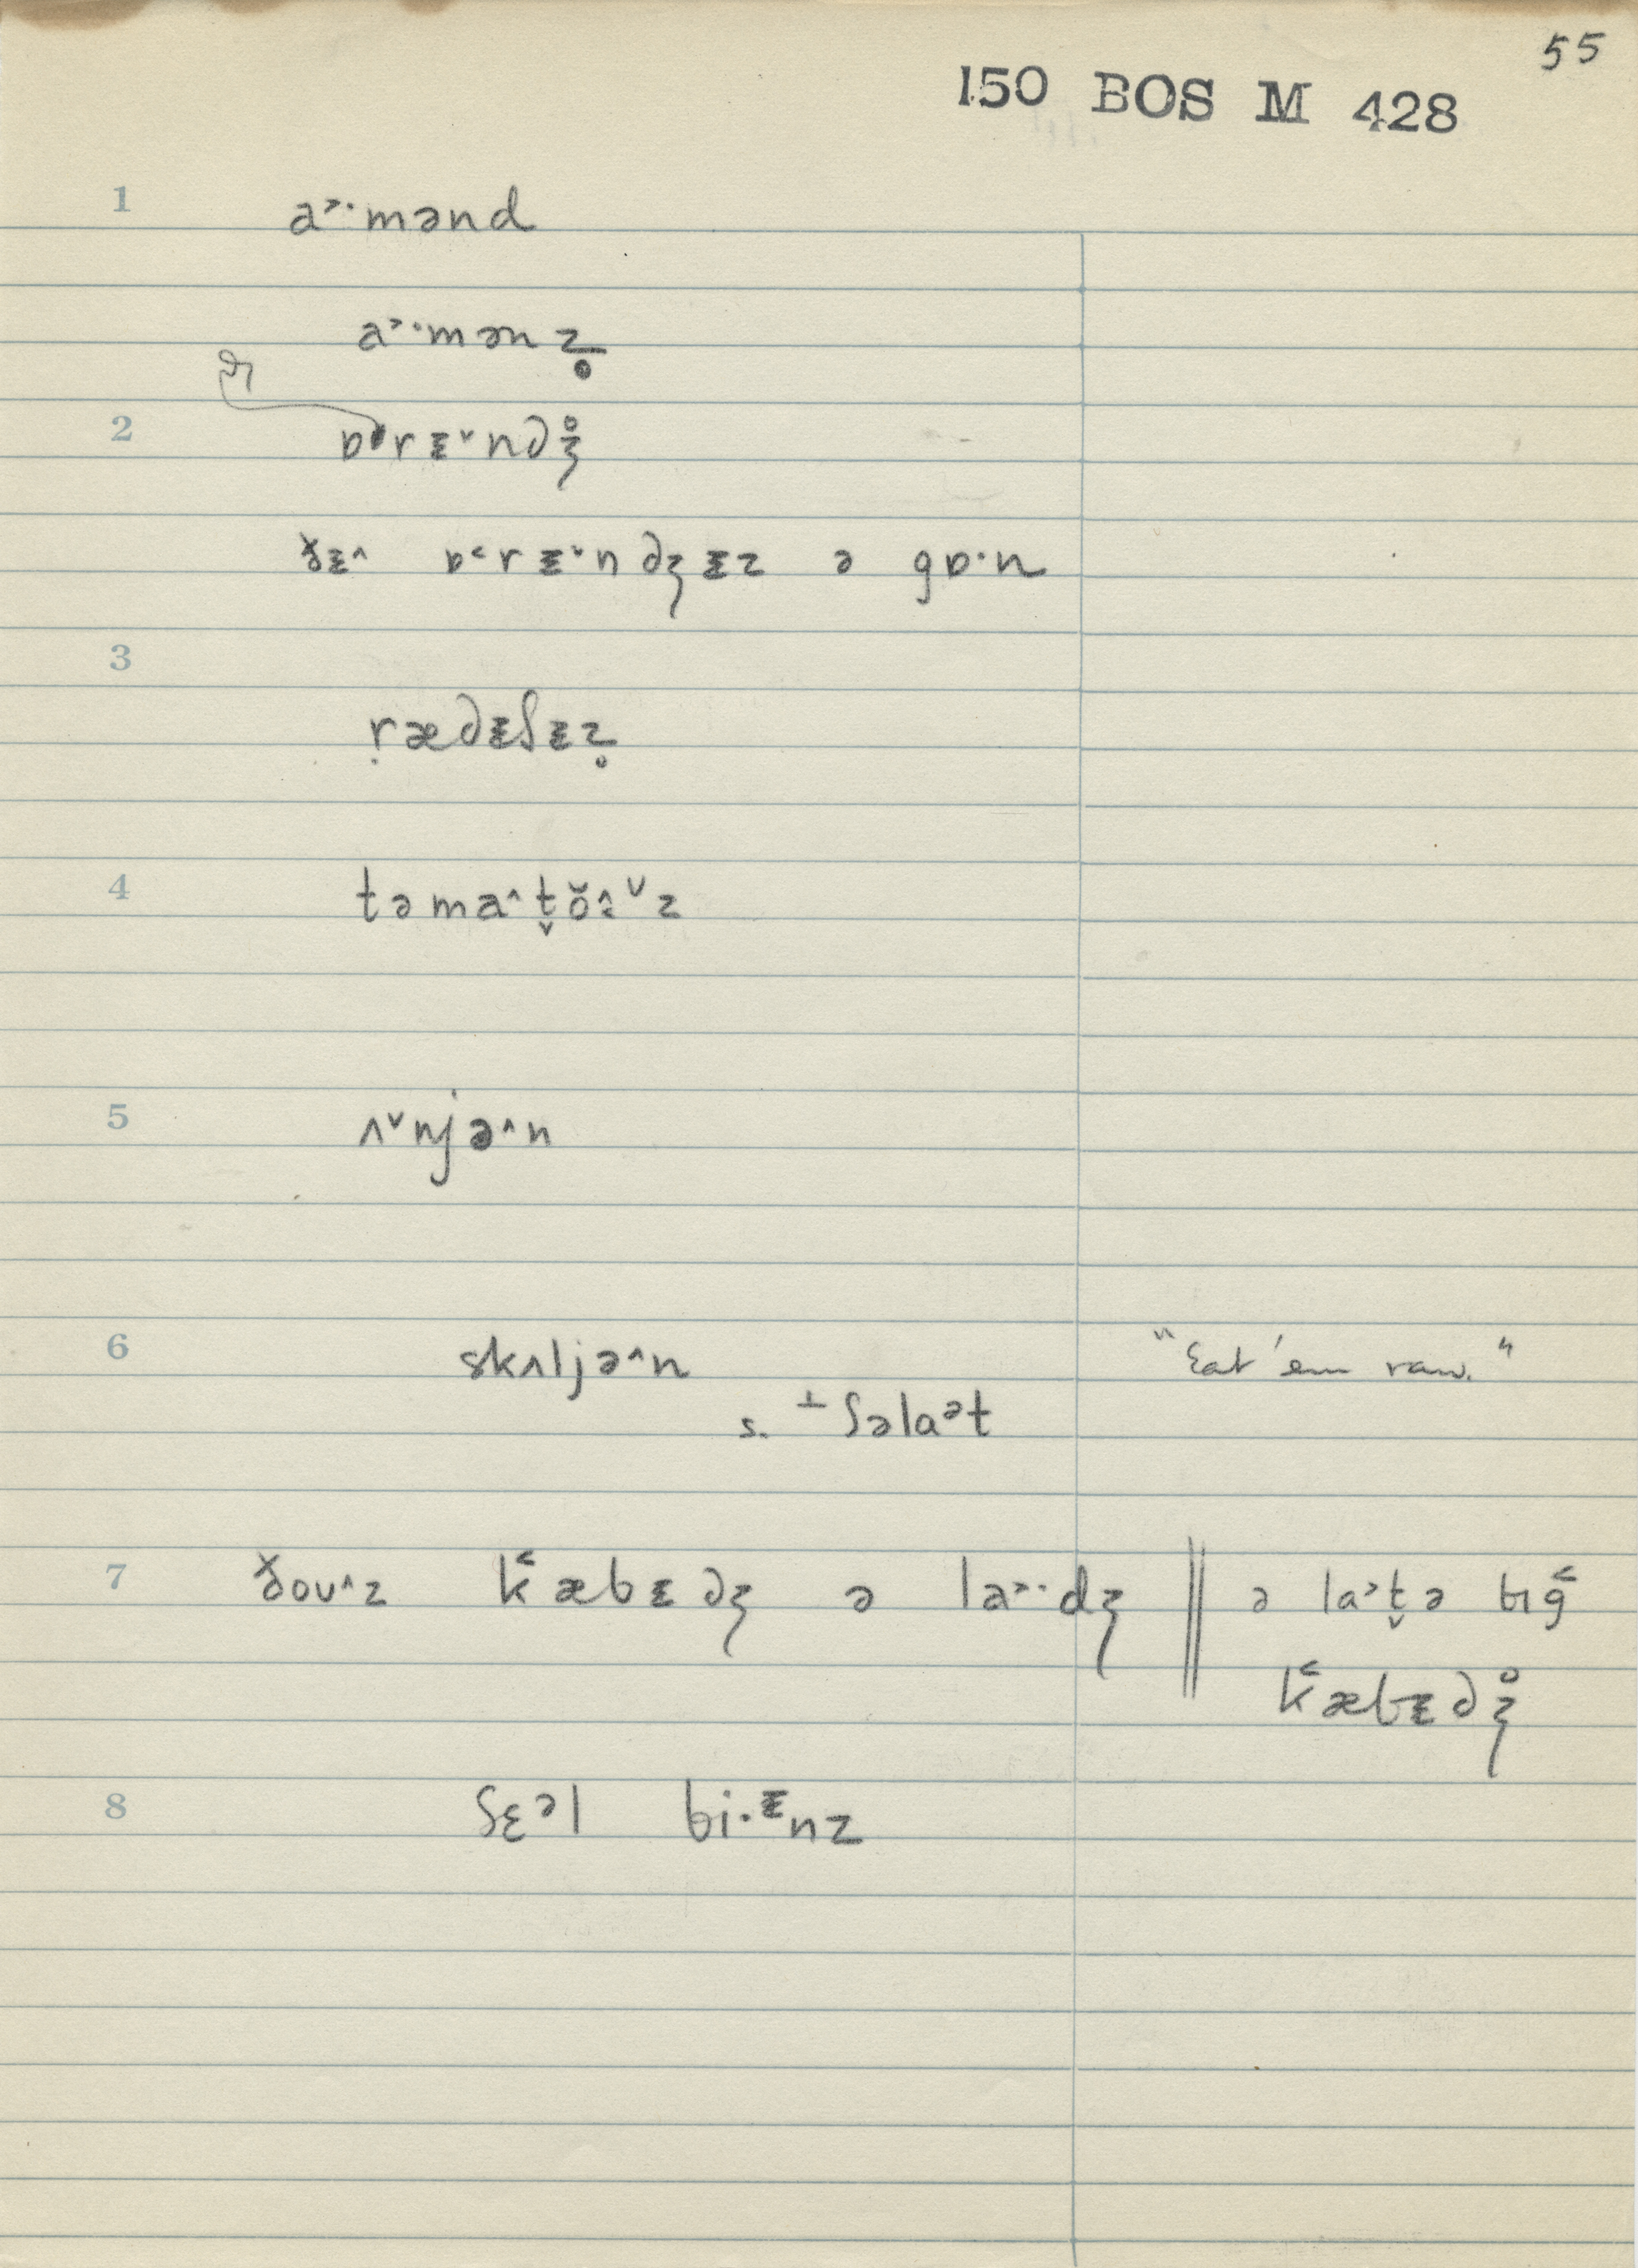 55
150 BOS M 428
1 a˃·mənd
a˃·mənz̥
2 ɒrᵻ˅ndʒ̊
ðᵻ˄ ɒ˂rᵻ˅ndʒᵻz ə gɒ·n
3
ṛædᵻʃᵻz̥
4 təma˄t̬ŏɜ˅z
5 ʌ˅njə˄n
6 skʌljə˄n "Eat 'em raw."
s. ⊥ ʃəlaᵊt
7 ðoʊ˄z k̑æbᵻdʒ ə la˃·dʒ ‖ ə la˃t̬ə bɪg˂
k˂æbᵻdʒ̊
8 ʃɛᵊl bi·ᵻnz